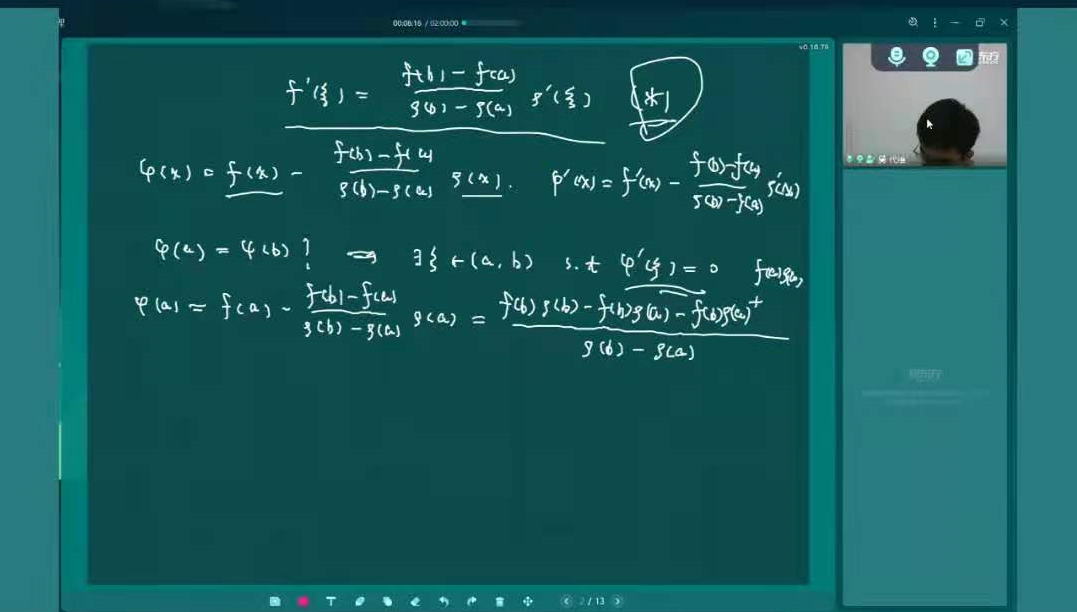 00:06:16 / 02:00:00
v0.16.79
f'(ξ) = f(b) - f(a) / g(b) - g(a) g'(ξ) (*)
φ(x) = f(x) - f(b) - f(a) / g(b) - g(a) g(x). φ'(x) = f'(x) - f(b) - f(a) / g(b) - g(a) g'(x)
φ(a) = φ(b) ? ⇒ ∃ξ ∈ (a, b) s.t φ'(ξ) = 0
φ(a) = f(a) - f(b) - f(a) / g(b) - g(a) g(a) = f(b) g(b) - f(b) g(a) - f(b) g(a) + f(a) g(a) / g(b) - g(a)
2 / 13